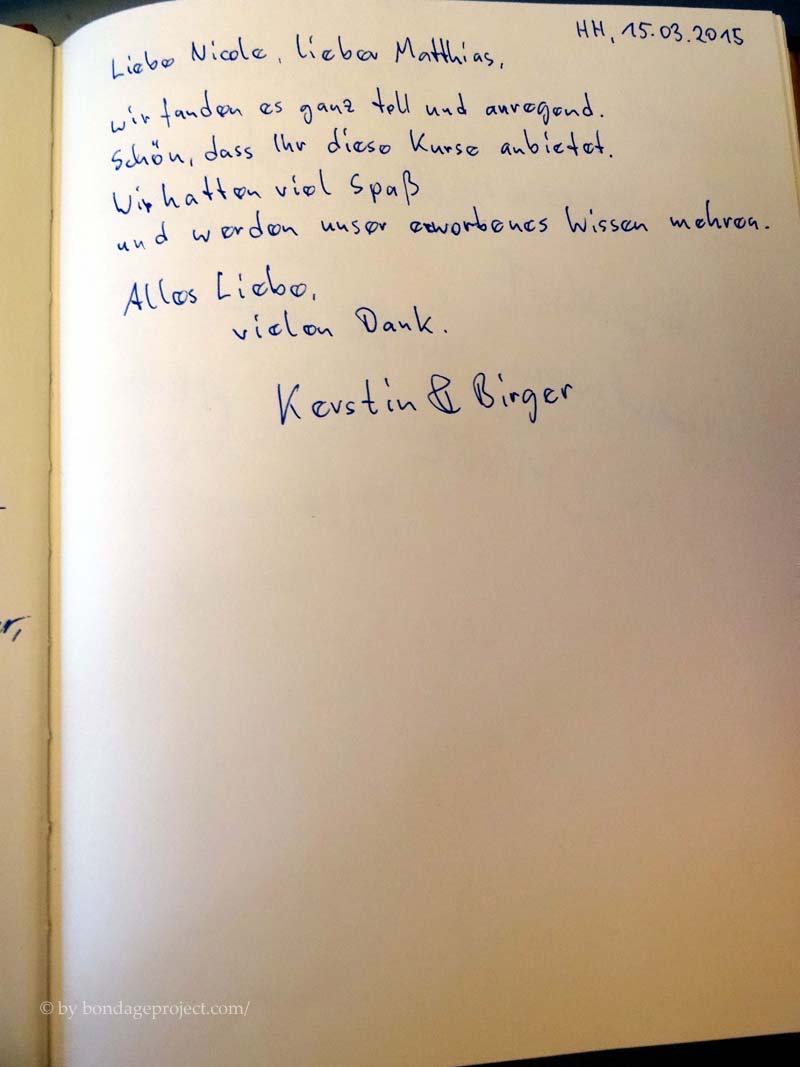 HH, 15.03.2015
Liebe Nicole, lieber Matthias,
wir fanden es ganz toll und anregend.
Schön, dass Ihr diese Kurse anbietet.
Wir hatten viel Spaß
und werden unser erworbenes Wissen mehren.
Alles Liebe,
vielen Dank.
Kerstin & Birger
r,
© by bondageproject.com/